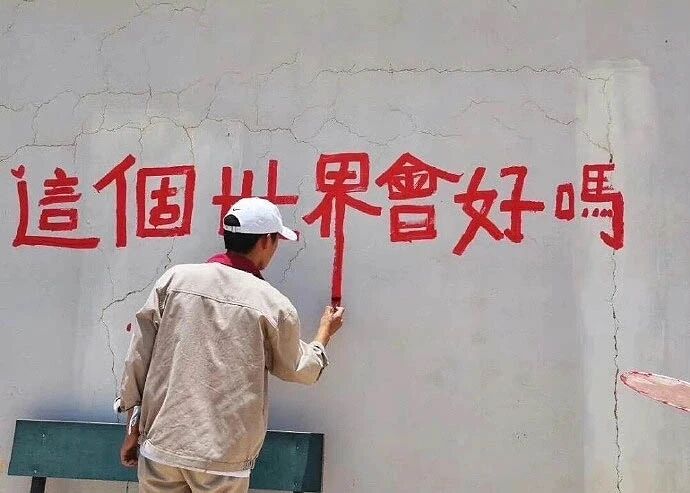 這個世界會好嗎